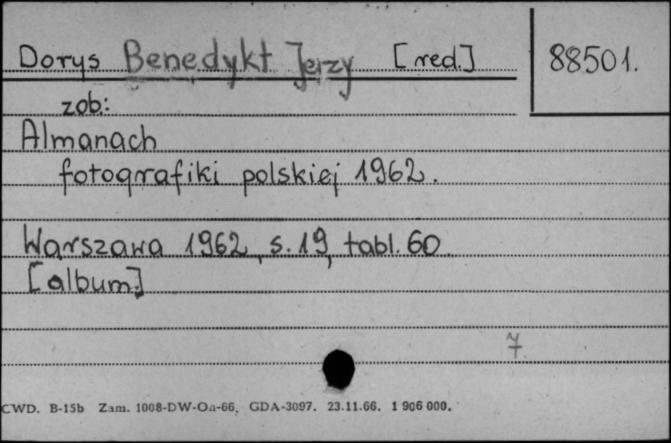 Dorys Benedykt Jerzy [red.] 88501.
zob:
Almanach
fotografiki polskiej 1962.
Warszawa 1962, s. 19, tabl. 60
[album]
7
CWD. B-15b Zam. 1008-DW-Oa-66. GDA-3097. 23.11.66. 1 906 000.